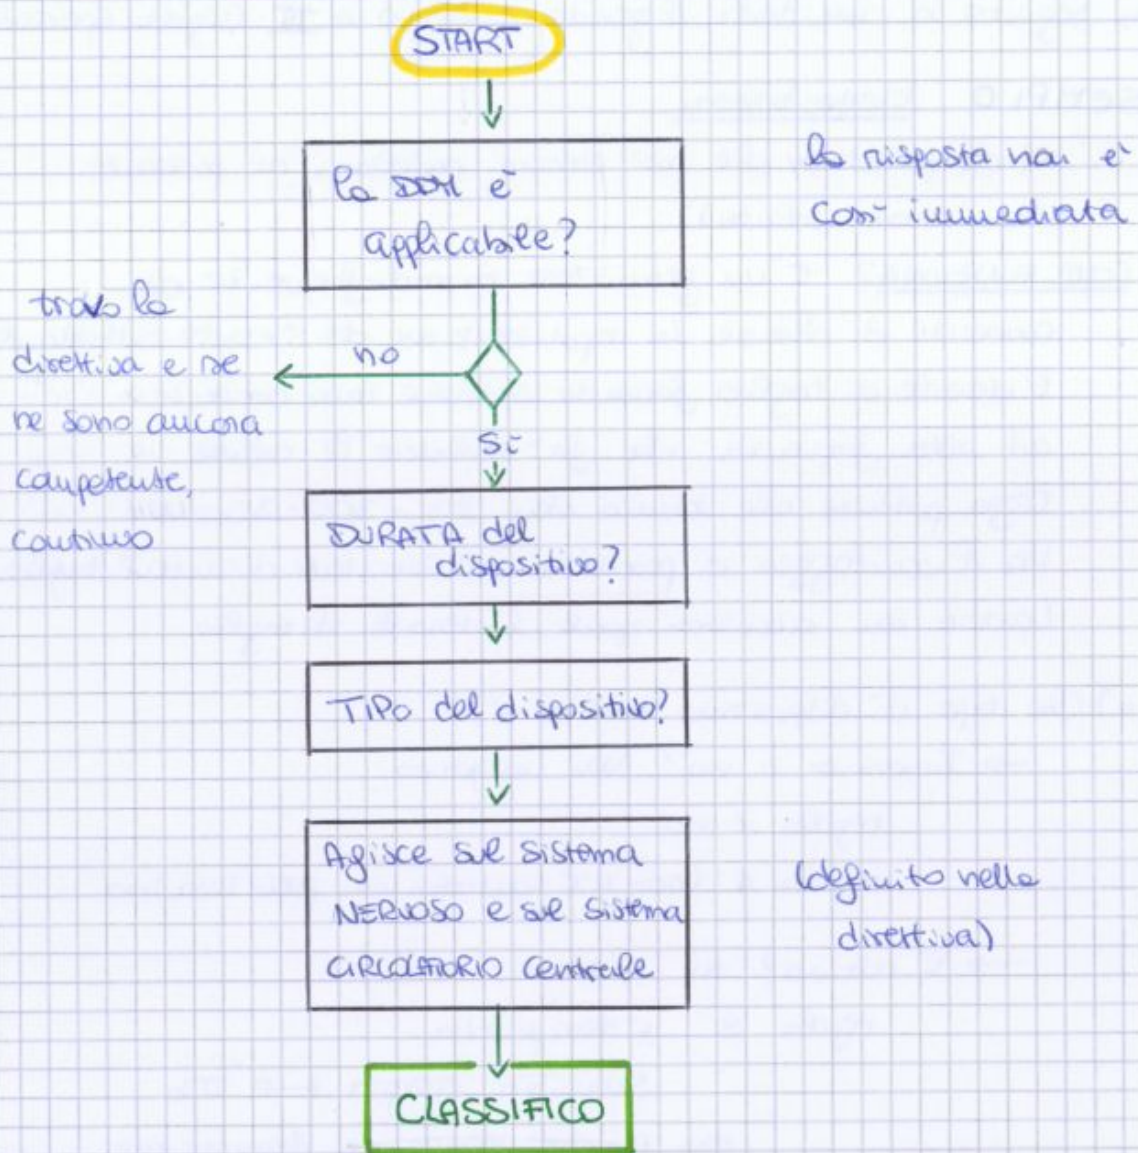 START
la DDM è
applicabile?
la risposta non è
così immediata
no
trovo la
direttiva e se
ne sono ancora
competente,
continuo
Sì
DURATA del
dispositivo?
TIPO del dispositivo?
Agisce sul sistema
NERVOSO e sul sistema
CIRCOLATORIO centrale
(definito nella
direttiva)
CLASSIFICO